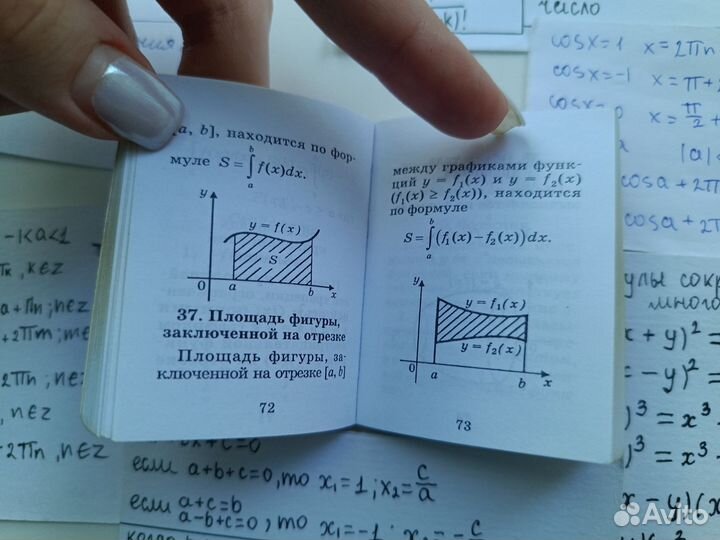 [a, b], находится по фор-
муле S = ∫ₐᵇ f(x)dx.
y
y = f(x)
S
0 a b x
37. Площадь фигуры,
заключенной на отрезке
Площадь фигуры, за-
ключенной на отрезке [a, b]
72
между графиками функ-
ций y = f₁(x) и y = f₂(x)
(f₁(x) ≥ f₂(x)), находится
по формуле
S = ∫ₐᵇ (f₁(x) − f₂(x))dx.
y
y = f₁(x)
y = f₂(x)
0 a b x
73
к)!
число
cosx=1 x=2πn
cosx=-1 x=π+2
x=π/2 +
|a|
cosa+2π
cosa+2π
-1<a<1
, k∈z
a+πn; n∈z
+2πm; m∈
2πn; n∈z
, n∈z
+2πn, n∈z
улы сокр
много
x+y)²=
-y)²=
)³=x³
)³=x³
x-y)(x
x+c=0
если a+b+c=0, то x₁=1; x₂=c/a
если a+c=b
a-b+c=0, то x₁=-1; x₂=-c
Avito